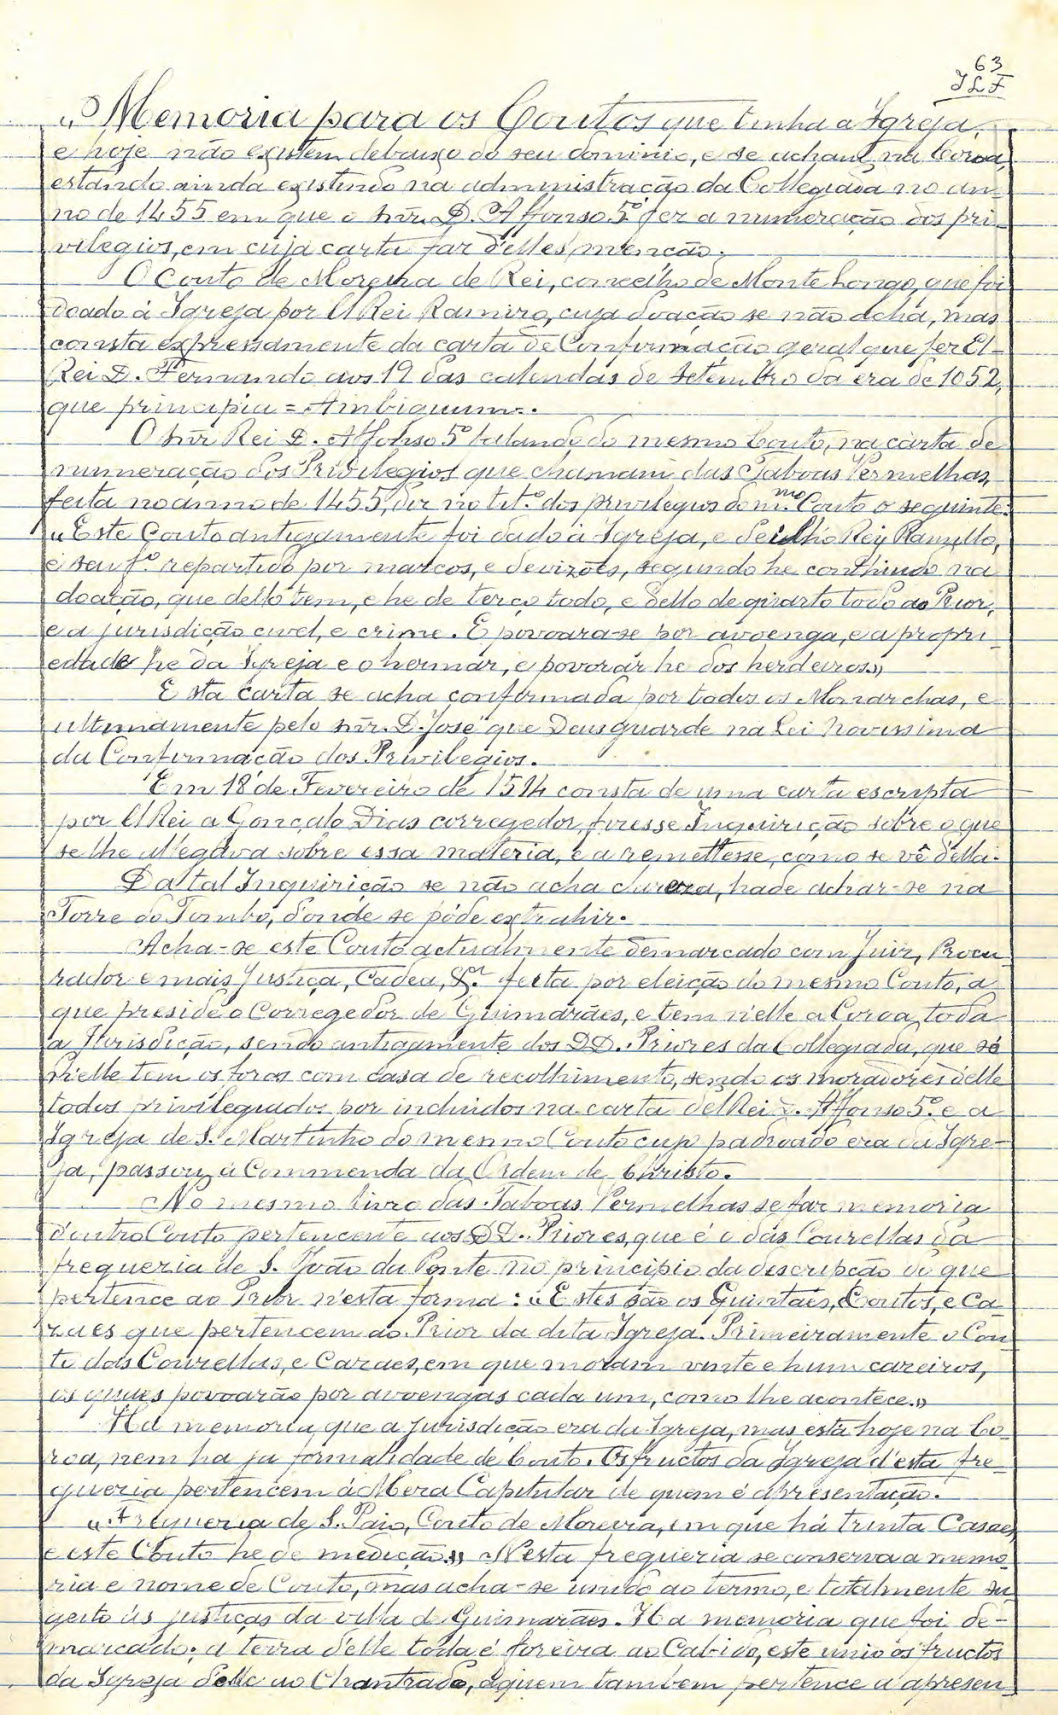 63
JLF
„ Memoria para os Coutos que tinha a Igreja,
e hoje não existem debaixo do seu dominio, e se acham na Coroa,
estando ainda existindo na administração da Collegiada no an-
no de 1455 em que o Snr. D. Affonso 5º fez a numeração dos pri-
vilegios, em cuja carta faz d'elles menção.
O Couto de Moreira de Rei, concelho de Monte Longo, que foi
doado á Igreja por El Rei Ramiro, cuja doação se não acha, mas
consta expressamente da carta de Confirmação geral que fez El-
Rei D. Fernando aos 19 das calendas de Setembro da era de 1052,
que principia = Ambiguum =.
O Snr Rei D. Affonso 5º fallando do mesmo Couto, na carta de
numeração dos Privilegios que chamam das Taboas Vermelhas,
feita no anno de 1455, diz no titº dos privilegios do m.mo Couto o seguinte:
„ Este Couto antigamente foi dado á Igreja, e deulho Rey Ramillo,
e seu fº repartido por marcos, e devizões, segundo he conthiudo na
doação, que dello tem, e he de terço todo, e dello de quarto todo do Prior,
e a jurisdição civel, e crime. E povoara-se por avoenga, e a propri-
edade he da Igreja e o hermar, e povorar he dos herdeiros.„
Esta carta se acha confirmada por todos os Monarchas, e
ultimamente pelo Snr. D. José que Deus guarde na Lei Novissima
da Confirmação dos Privilegios.
Em 18 de Fevereiro de 1514 consta de uma carta escripta
por El Rei a Gonçalo Dias corregedor, fizesse Inquirição sobre o que
se lhe allegava sobre essa materia, e a remettesse, como se vê della.
Da tal Inquirição se não acha clareza, hade achar-se na
Torre do Tombo, donde se póde extrahir.
Acha-se este Couto actualmente demarcado com Juiz, Procu-
rador e mais Justiça, Cadeu, &.a feita por eleição do mesmo Couto, a
que preside o Corregedor de Guimarães, e tem n'elle a Coroa toda
a Jurisdição, sendo antigamente dos DD. Priores da Collegiada, que só
n'elle tem os foros com casa de recolhimento, sendo os moradores delle
todos privilegiados por incluidos na carta delRei D. Affonso 5º. e a
Igreja de S. Martinho do mesmo Couto cujo padroado era da Igre-
ja, passou á Commenda da Ordem de Christo.
No mesmo livro das Taboas Vermelhas se faz memoria
d'outro Couto pertencente aos DD. Priores, que é o das Courellas da
freguezia de S. João da Ponte no principio da descripção do que
pertence ao Prior n'esta forma: „ Estes são os Quintães, Coutos, e Ca-
zaes que pertencem ao Prior da dita Igreja. Primeiramente o Cou-
to das Courellas, e Cazaes, em que moram vinte e hum cazeiros,
os quaes povoarão por avoengas cada um, como lhe acontece.„
Ha memoria que a jurisdição era da Igreja, mas está hoje na Co-
roa, nem ha ja formalidade de Couto. Os fructos da Igreja d'esta fre-
guezia pertencem á Meza Capitular de quem é apresentação.
„ Freguezia de S. Paio, Couto de Moreira, em que há trinta Casaes,
e este Couto he de medição.„ Nesta freguezia se conserva a memo-
ria e nome de Couto, mas acha-se unido ao termo, e totalmente su-
geito ás justiças da villa de Guimarães. Ha memoria que foi de-
marcado; a terra d'elle toda é foreira ao Cabido, este unio os fructos
da Igreja delle ao Chantrado, a quem tambem pertence a apresen-